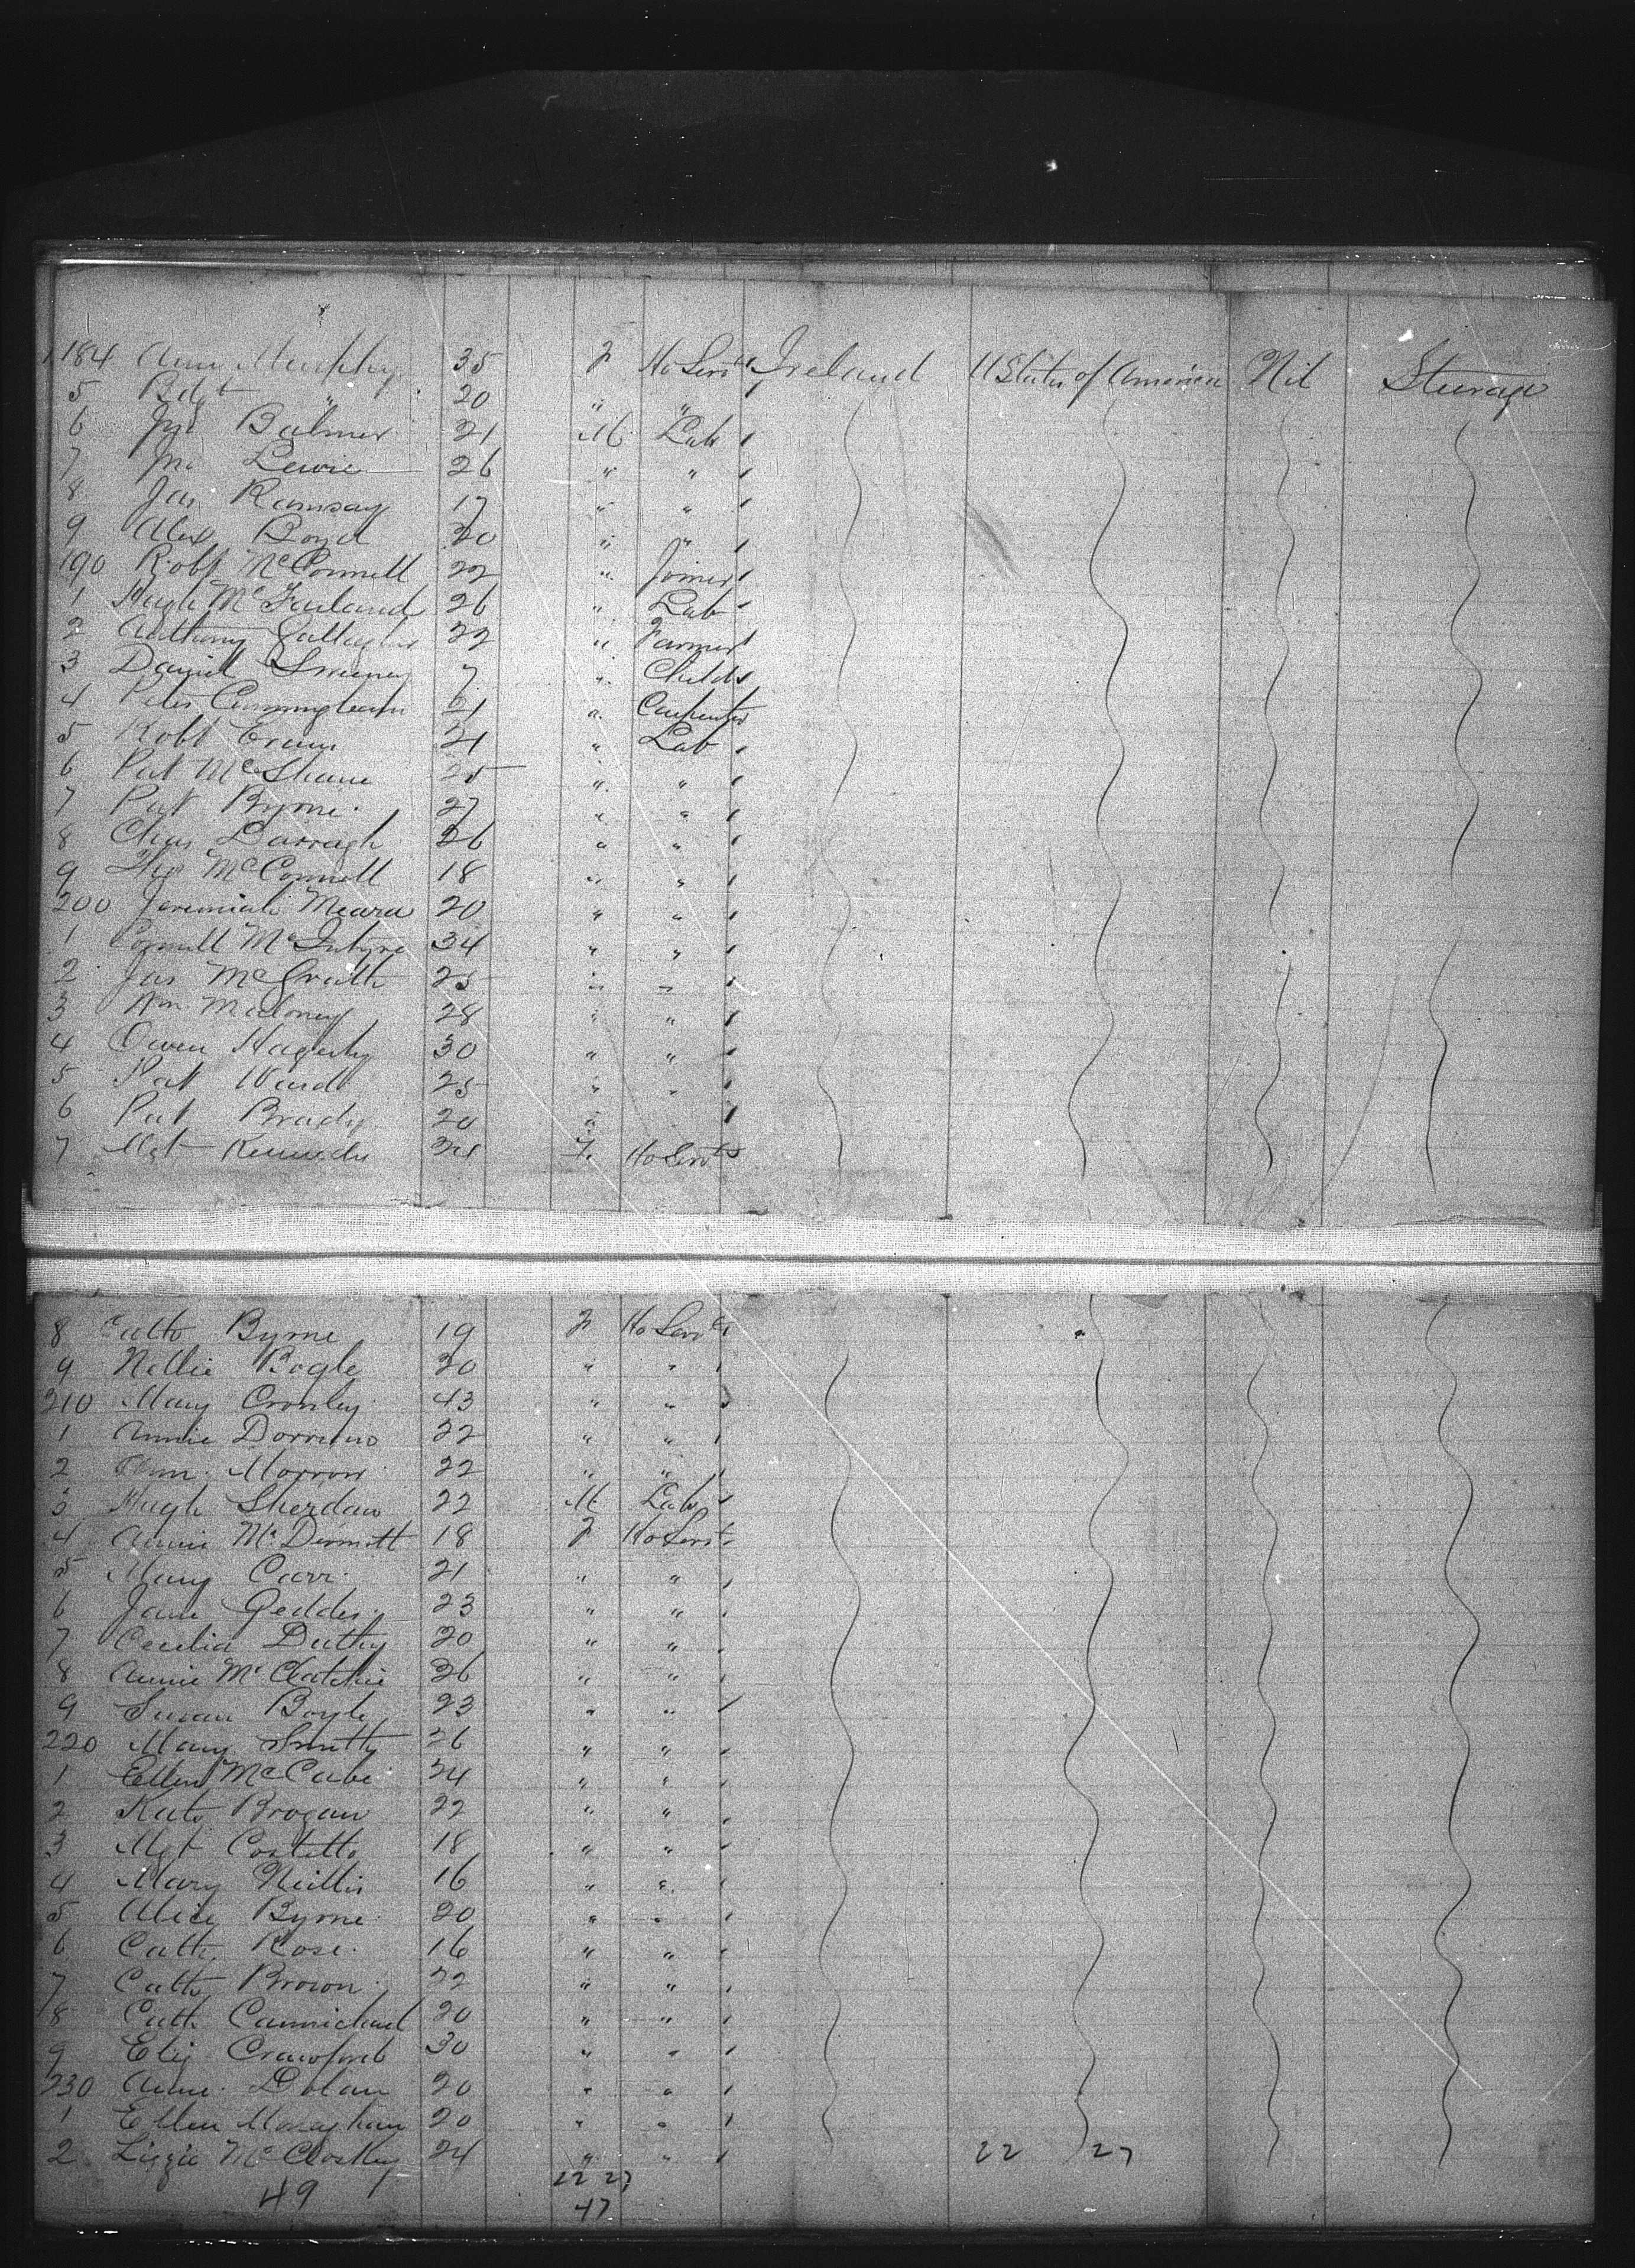 184 Ann Murphy 35 F Ho Servt Ireland U States of America Nil Steerage
5 Bdgt " 20 " "
6 Jas Balmer 21 M Lab
7 Jno Lewie 26 " "
8 Jas Ramsay 17 " "
9 Alex Boyd 20 " "
190 Robt McConnell 22 " Joiner
1 Hugh McFarland 26 " Lab
2 Anthony Gallagher 22 " Farmer
3 Daniel Sweeney 7 " Child
4 Peter Cunningham 21 " Carpenter
5 Robt 21 " Lab
6 Pat McShane 25 " "
7 Pat Byrne 27 " "
8 Chas Darragh 26 " "
9 McConnell 18 " "
200 Jeremiah Meara 20 " "
1 Connell McIntyre 34 " "
2 Jas McGrath 25 " "
3 Wm Maloney 28 " "
4 Owen Hagerty 30 " "
5 Pat Ward 25 " "
6 Pat Brady 20 "
7 Mgt Kennedy 24 F. Ho Servt
8 Cath Byrne 19 F Ho Servt
9 Nellie Bogle 20 " "
210 Mary Crossley 43 " "
1 Annie 22 " "
2 Morrow 22 " "
3 Hugh Sherdan 22 M Lab
4 Annie McDermott 18 F Ho Servt
5 Mary Carr 21 " "
6 Jane Geddes 23 " "
7 Cecilia Duthy 20 " "
8 Annie McClatchie 26 " "
9 Susan Boyle 23 " "
220 Mary 26 " "
1 Ellen McCabe 24 " "
2 Kate Brogan 22 " "
3 Mgt Costello 18 " "
4 Mary Neillis 16 " "
5 Alice Byrne 20 " "
6 Cath Rose 16 " "
7 Cath Brown 22 " "
8 Cath Carmichael 20 " "
9 Eliz Crawford 30 " "
230 Annie Dolan 20 " "
1 Ellen Monaghan 20 " "
2 Lizzie McCloskey 24 " " 22 27
49 22 27
47